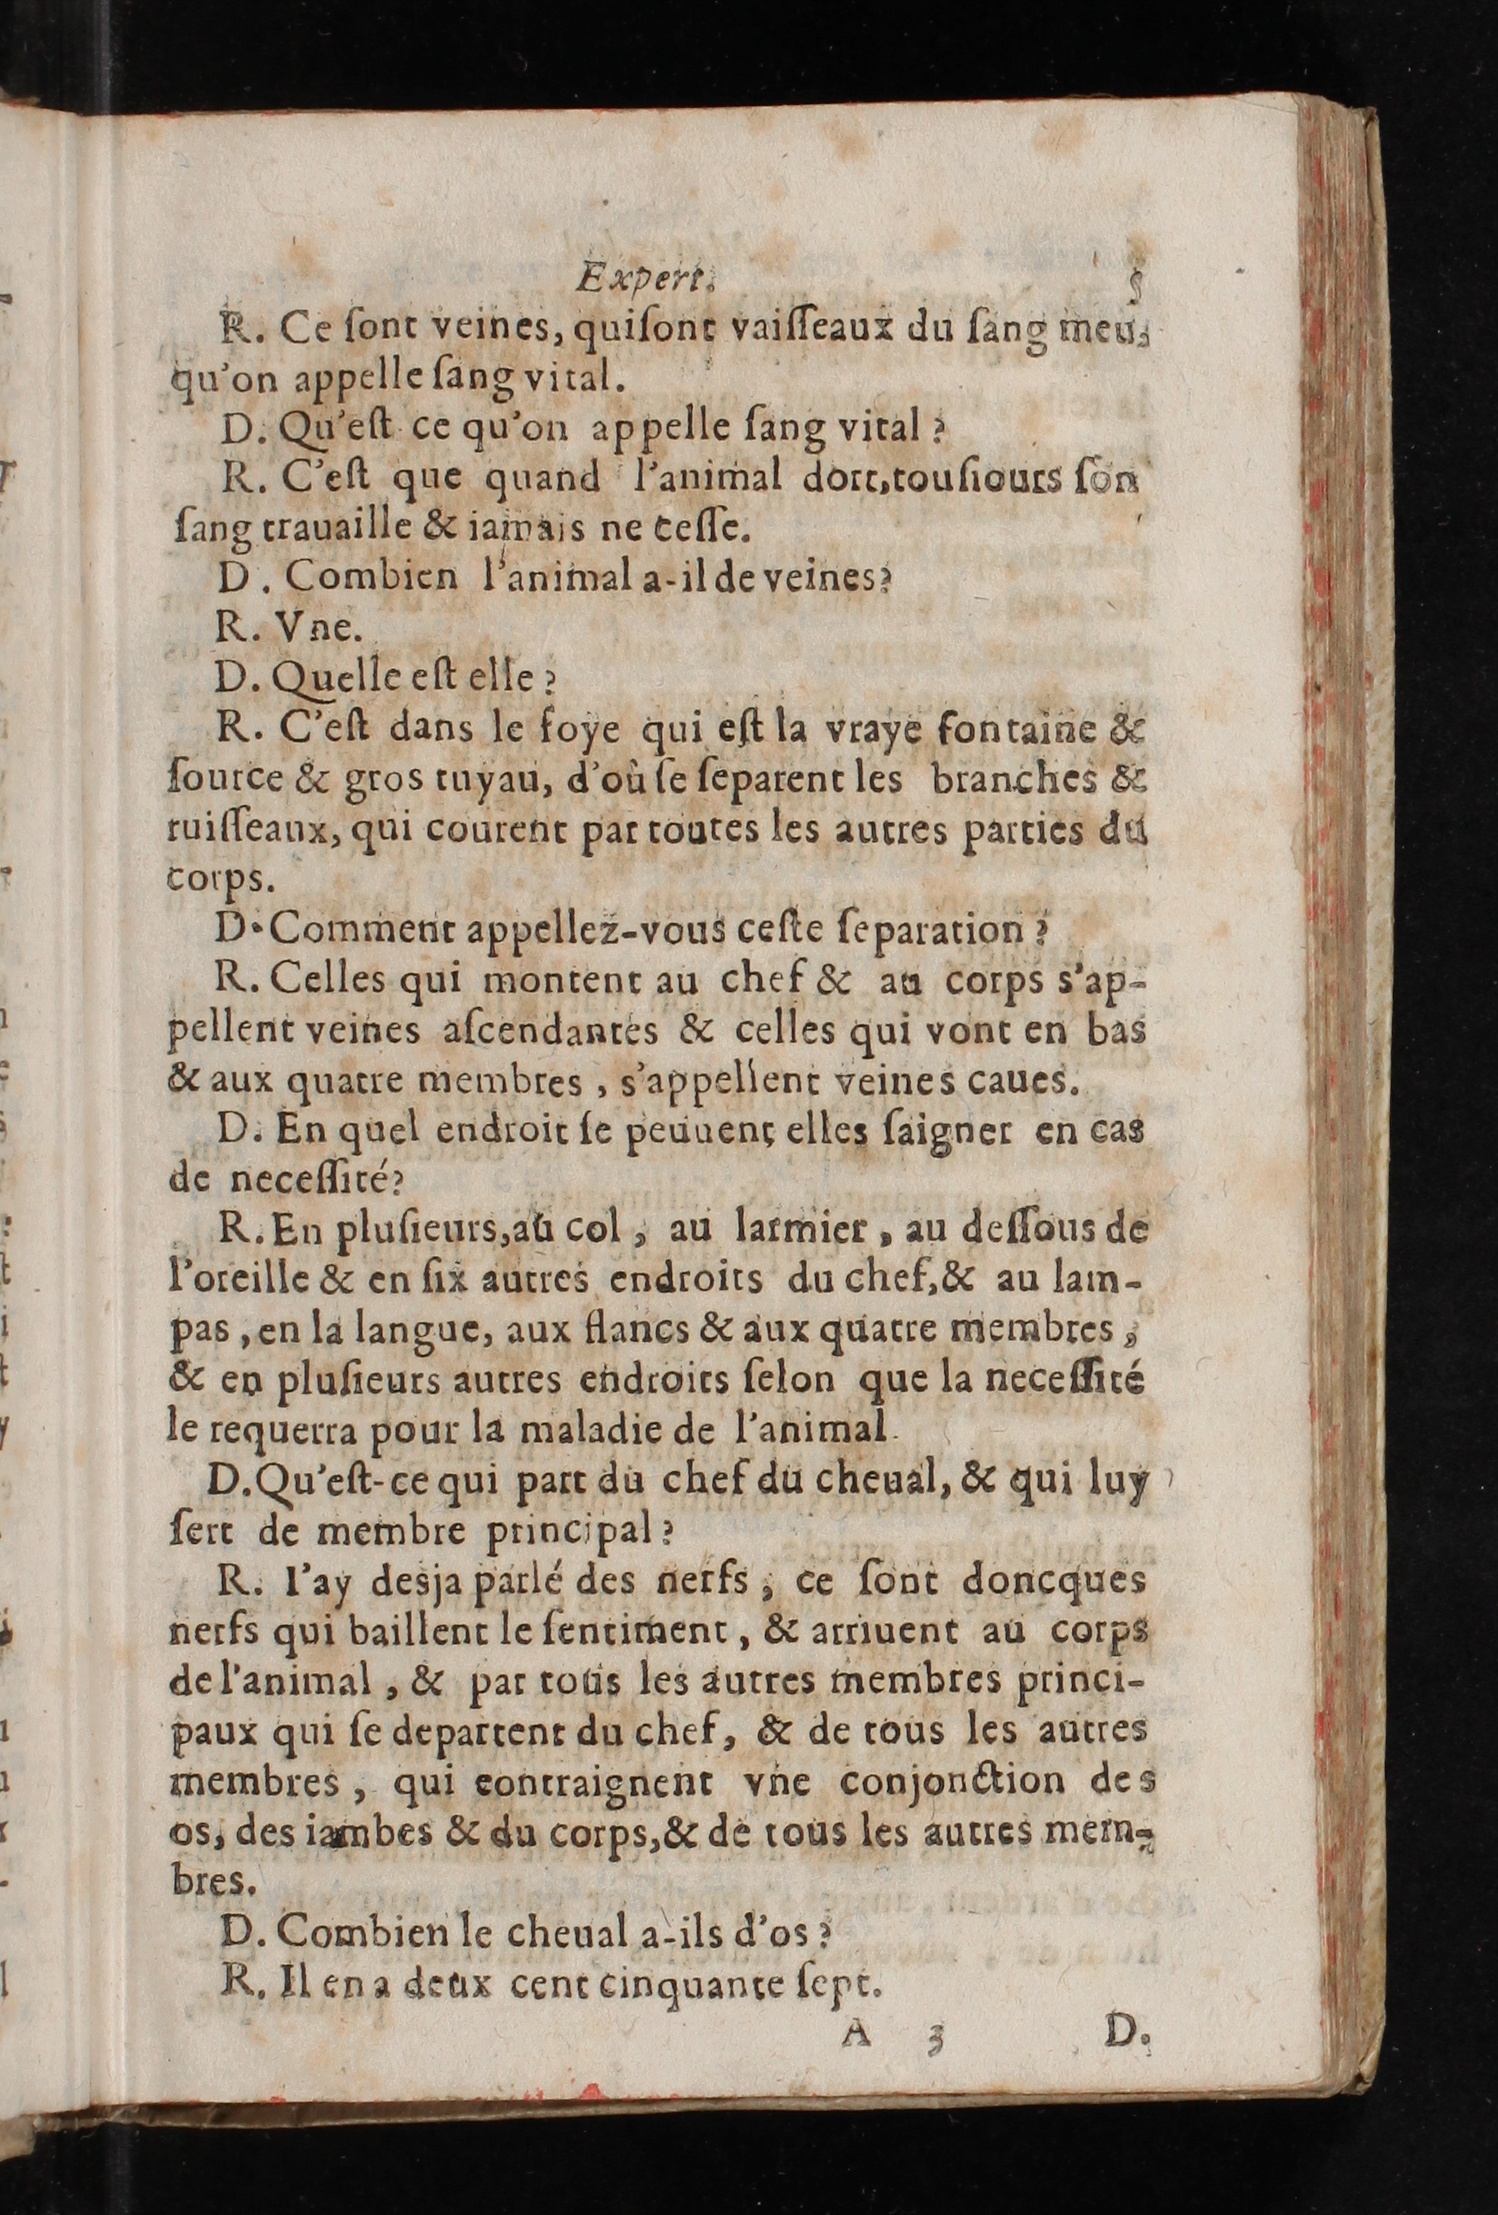 Expert. 5
R. Ce ſont veines, quiſont vaiſſeaux du ſang meu,
qu'on appelle ſang vital.
D. Qu'eſt ce qu'on appelle ſang vital ?
R. C'eſt que quand l'animal dort,touſiours ſon
ſang trauaille & iamais ne ceſſe.
D. Combien l'animal a-il de veines?
R. Vne.
D. Quelle eſt elle ?
R. C'eſt dans le foye qui eſt la vraye fontaine &
ſource & gros tuyau, d'où ſe ſeparent les branches &
ruiſſeaux, qui courent par toutes les autres parties du
corps.
D. Comment appellez-vous ceſte ſeparation ?
R. Celles qui montent au chef & au corps s'ap-
pellent veines aſcendantes & celles qui vont en bas
& aux quatre membres, s'appellent veines caues.
D. En quel endroit ſe peuuent elles ſaigner en cas
de neceſſité?
R. En pluſieurs,au col, au larmier, au deſſous de
l'oreille & en ſix autres endroits du chef,& au lam-
pas, en la langue, aux flancs & aux quatre membres,
& en pluſieurs autres endroits ſelon que la neceſſité
le requerra pour la maladie de l'animal.
D.Qu'eſt-ce qui part du chef du cheual, & qui luy
ſert de membre principal ?
R. I'ay desja parlé des nerfs, ce ſont doncques
nerfs qui baillent le ſentiment, & arriuent au corps
de l'animal, & par tous les autres membres princi-
paux qui ſe departent du chef, & de tous les autres
membres, qui contraignent vne conjonction des
os, des iambes & du corps,& de tous les autres mem-
bres.
D. Combien le cheual a-ils d'os ?
R. Il en a deux cent cinquante ſept.
A 3 D.